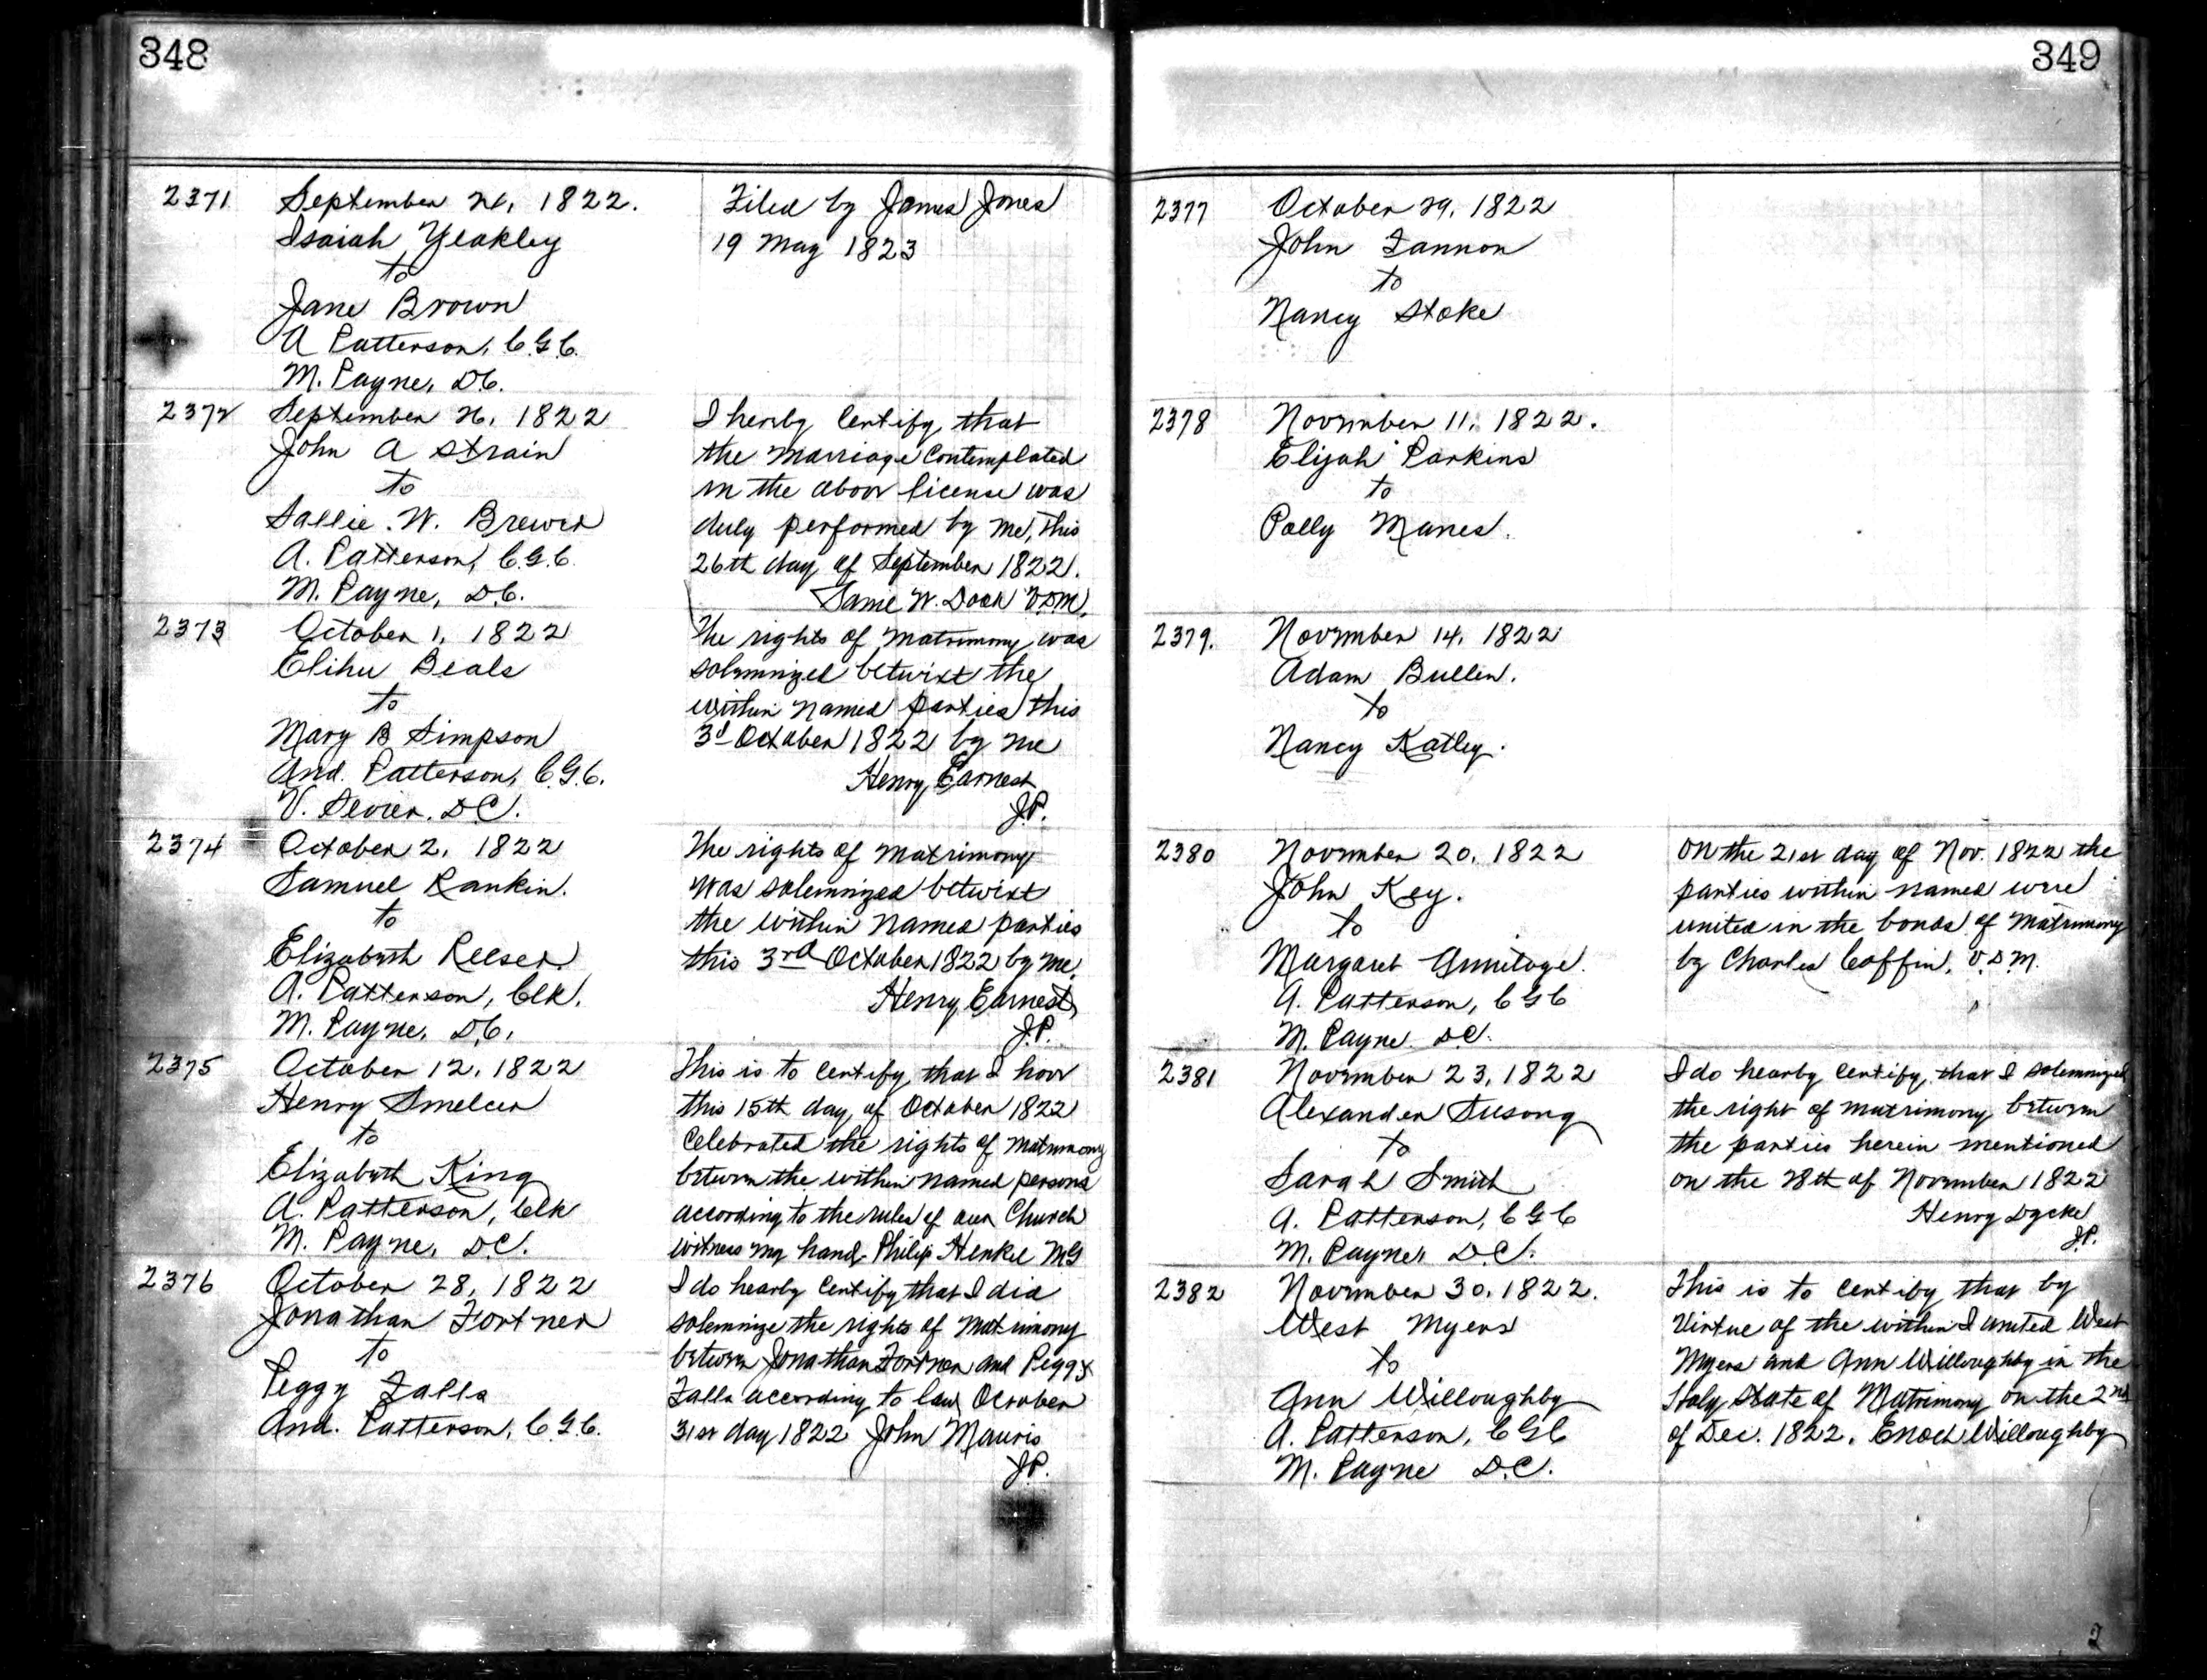 348
2371
September 21, 1822.
Isaiah Yeakley
to
Jane Brown
A Patterson, C.G.C.
M. Payne, D.C.
Filed by James Jones
19 May 1823
2372
September 26, 1822
John A Strain
to
Sallie W. Brewer
A. Patterson, C.G.C.
M. Payne, D.C.
I hereby Certify that
the Marriage Contemplated
in the above license was
duly performed by me, this
26th day of September 1822.
Same W. Doak V.D.M.
2373
October 1, 1822
Elihu Beals
to
Mary B Simpson
And. Patterson, C.G.C.
V. Sevier, D.C.
The rights of Matrimony was
solemnized betwixt the
within named parties this
3d October 1822 by me
Henry Earnest
J.P.
2374
October 2, 1822
Samuel Rankin.
to
Elizabeth Reeser
A. Patterson, Clk.
M. Payne, D.C.
The rights of Matrimony
was solemnized betwixt
the within named parties
this 3rd October 1822 by me.
Henry Earnest,
J.P.
2375
October 12, 1822
Henry Smelcer
to
Elizabeth King
A. Patterson, Clk
M. Payne, D.C.
This is to Certify, that I have
this 15th day of October 1822
Celebrated the rights of Matrimony
between the within named persons
according to the rules of our Church
witness my hand Philip Henkel MG
2376
October 28, 1822
Jonathan Fortner
to
Peggy Falls
And. Patterson, C.G.C.
I do hearby Certify that I did
solemnize the rights of Matrimony
between Jonathan Fortner and Peggy
Falls according to law October
31st day 1822 John Mauris
J.P.
349
2377
October 29, 1822
John Fannon
to
Nancy Stoke
2378
November 11, 1822.
Elijah Parkins
to
Polly Manes.
2379.
November 14, 1822
Adam Bullen.
to
Nancy Katley.
2380
November 20, 1822
John Key.
to
Margaret Armitage.
A. Patterson, C G C
M. Payne D.C.
On the 21st day of Nov. 1822 the
parties within named were
united in the bonds of Matrimony
by Charles Coffin, V.D.M.
2381
November 23, 1822
Alexander Susong
to
Sarah Smith
A. Patterson, C G C
M. Payner D.C.
I do hearby Certify, that I solemnized
the right of matrimony between
the parties herein mentioned
on the 28th of November 1822
Henry Dycke
J.P.
2382
November 30, 1822.
West Myers
to
Ann Willoughby
A. Patterson, C G C
M. Payne D.C.
This is to Certify that by
Virtue of the within I united West
Myers and Ann Willoughby in the
Holy State of Matrimony on the 2nd
of Dec. 1822. Enoch Willoughby
2